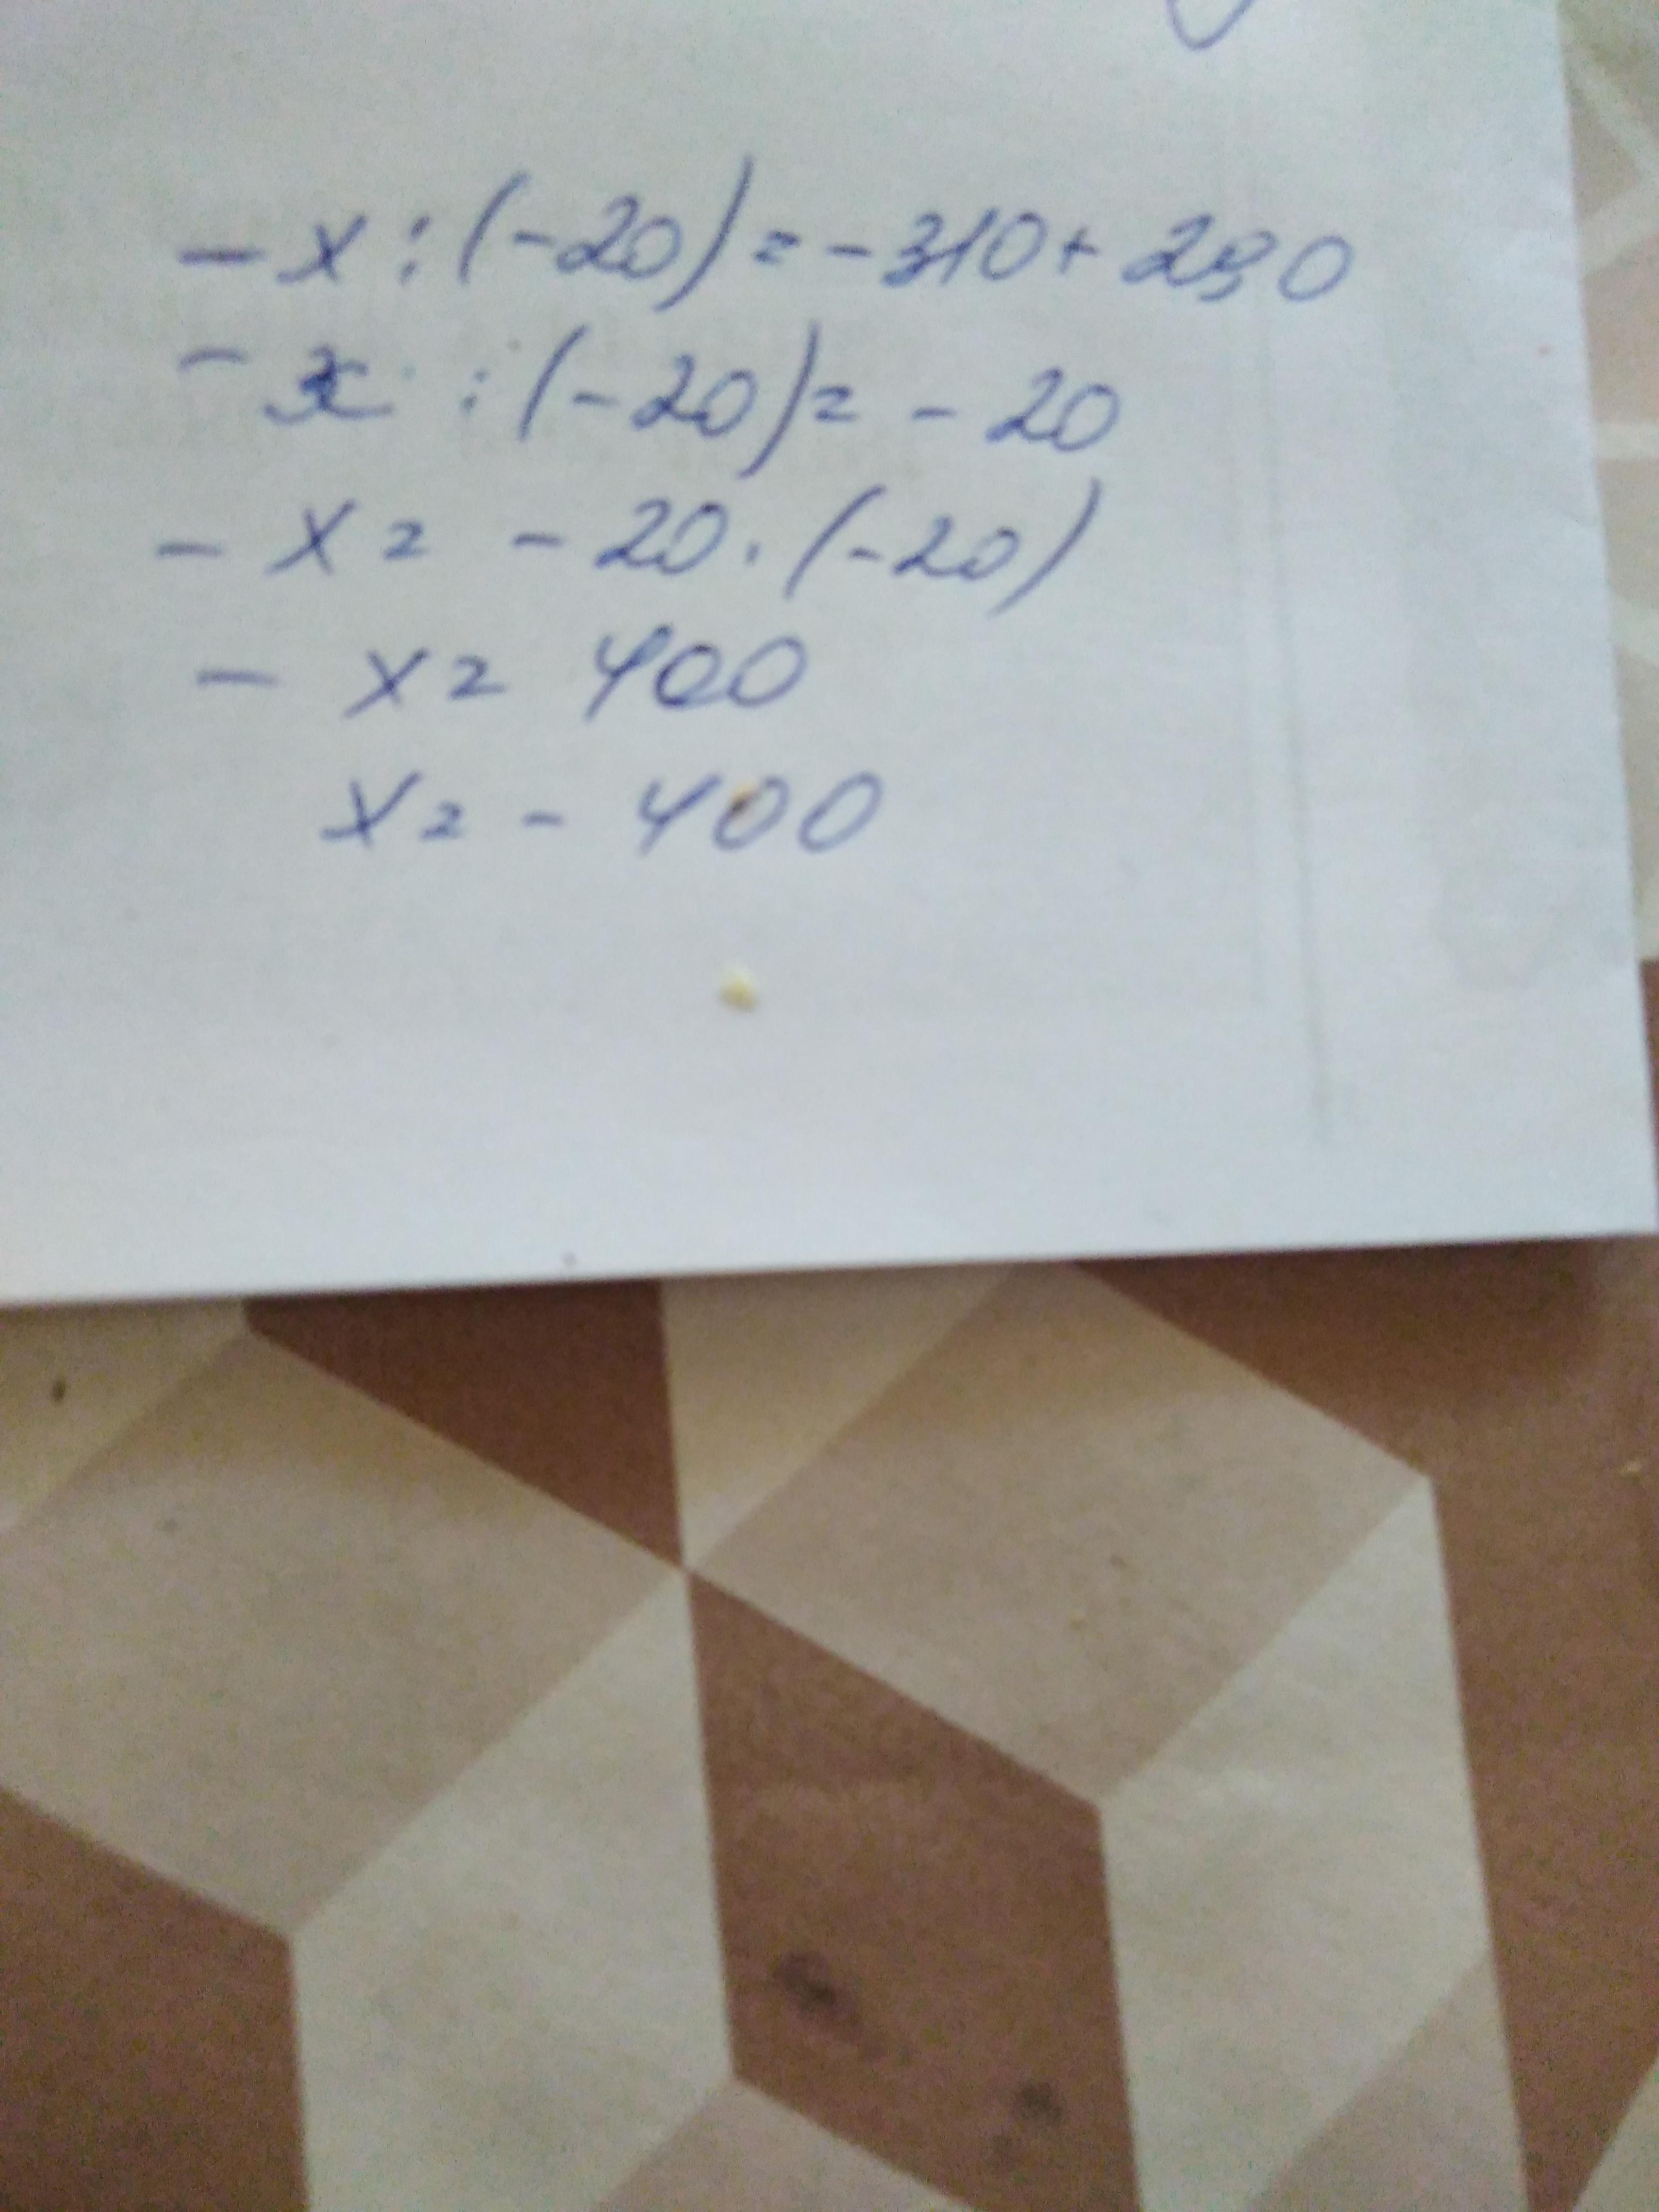 - x : (-20) = -310 + 290
- x : (-20) = - 20
- x = - 20 · (-20)
- x = 400
x = - 400